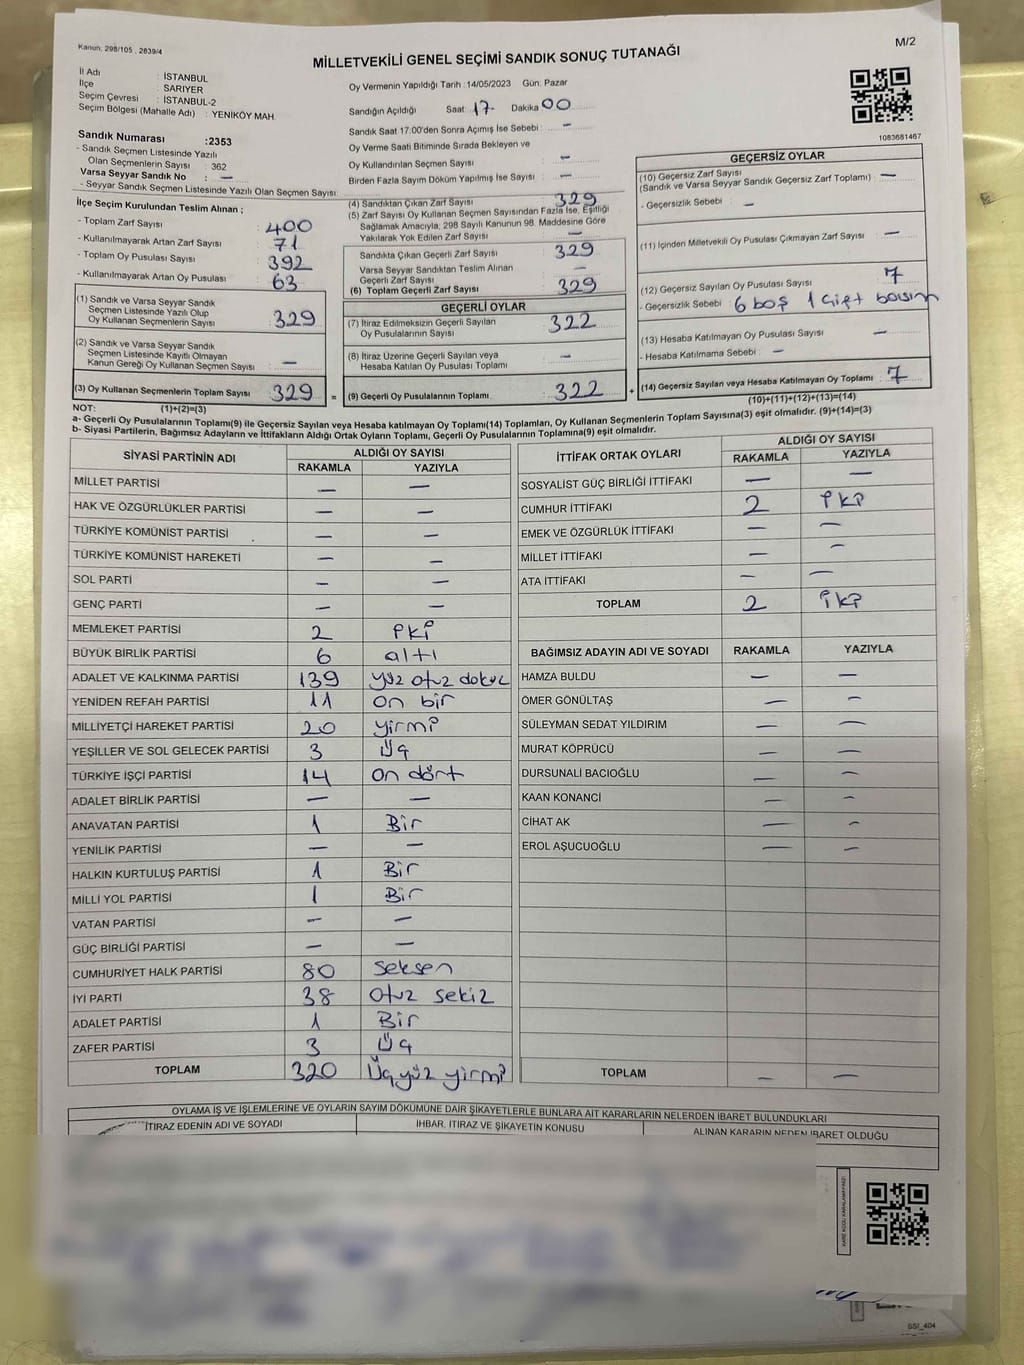 Kanun, 298/105 , 2839/4
M/2
MİLLETVEKİLİ GENEL SEÇİMİ SANDIK SONUÇ TUTANAĞI
İl Adı : İSTANBUL
İlçe : SARIYER
Seçim Çevresi : İSTANBUL-2
Seçim Bölgesi (Mahalle Adı) : YENİKÖY MAH.
Sandık Numarası :2353
- Sandık Seçmen Listesinde Yazılı
Olan Seçmenlerin Sayısı : 362
Varsa Seyyar Sandık No : —
- Seyyar Sandık Seçmen Listesinde Yazılı Olan Seçmen Sayısı:
Oy Vermenin Yapıldığı Tarih :14/05/2023 Gün: Pazar
Sandığın Açıldığı Saat :17 Dakika:00
Sandık Saat 17.00'den Sonra Açımış İse Sebebi : —
Oy Verme Saati Bitiminde Sırada Bekleyen ve
Oy Kullandırılan Seçmen Sayısı : —
Birden Fazla Sayım Döküm Yapılmış İse Sayısı : —
1083681467
İlçe Seçim Kurulundan Teslim Alınan ;
- Toplam Zarf Sayısı : 400
- Kullanılmayarak Artan Zarf Sayısı : 71
- Toplam Oy Pusulası Sayısı : 392
- Kullanılmayarak Artan Oy Pusulası : 63
(1) Sandık ve Varsa Seyyar Sandık
Seçmen Listesinde Yazılı Olup
Oy Kullanan Seçmenlerin Sayısı : 329
(2) Sandık ve Varsa Seyyar Sandık
Seçmen Listesinde Kayıtlı Olmayan
Kanun Gereği Oy Kullanan Seçmen Sayısı : —
(3) Oy Kullanan Seçmenlerin Toplam Sayısı : 329 =
(4) Sandıktan Çıkan Zarf Sayısı : 329
(5) Zarf Sayısı Oy Kullanan Seçmen Sayısından Fazla İse, Eşitliği
Sağlamak Amacıyla, 298 Sayılı Kanunun 98. Maddesine Göre
Yakılarak Yok Edilen Zarf Sayısı : —
Sandıkta Çıkan Geçerli Zarf Sayısı : 329
Varsa Seyyar Sandıktan Teslim Alınan
Geçerli Zarf Sayısı : —
(6) Toplam Geçerli Zarf Sayısı : 329
GEÇERLİ OYLAR
(7) İtiraz Edilmeksizin Geçerli Sayılan
Oy Pusulalarının Sayısı : 322
(8) İtiraz Üzerine Geçerli Sayılan veya
Hesaba Katılan Oy Pusulası Toplamı : —
(9) Geçerli Oy Pusulalarının Toplamı : 322 +
GEÇERSİZ OYLAR
(10) Geçersiz Zarf Sayısı : —
(Sandık ve Varsa Seyyar Sandık Geçersiz Zarf Toplamı)
- Geçersizlik Sebebi : —
(11) İçinden Milletvekili Oy Pusulası Çıkmayan Zarf Sayısı : —
(12) Geçersiz Sayılan Oy Pusulası Sayısı : 7
- Geçersizlik Sebebi : 6 boş 1 çift basım
(13) Hesaba Katılmayan Oy Pusulası Sayısı : —
- Hesaba Katılmama Sebebi : —
(14) Geçersiz Sayılan veya Hesaba Katılmayan Oy Toplamı : 7
(10)+(11)+(12)+(13)=(14)
NOT: (1)+(2)=(3)
a- Geçerli Oy Pusulalarının Toplamı(9) ile Geçersiz Sayılan veya Hesaba katılmayan Oy Toplamı(14) Toplamları, Oy Kullanan Seçmenlerin Toplam Sayısına(3) eşit olmalıdır. (9)+(14)=(3)
b- Siyasi Partilerin, Bağımsız Adayların ve İttifakların Aldığı Ortak Oyların Toplamı, Geçerli Oy Pusulalarının Toplamına(9) eşit olmalıdır.
SİYASİ PARTİNİN ADI ALDIĞI OY SAYISI
RAKAMLA YAZIYLA
MİLLET PARTİSİ — —
HAK VE ÖZGÜRLÜKLER PARTİSİ — —
TÜRKİYE KOMÜNİST PARTİSİ — —
TÜRKİYE KOMÜNİST HAREKETİ — —
SOL PARTİ — —
GENÇ PARTİ — —
MEMLEKET PARTİSİ 2 İki
BÜYÜK BİRLİK PARTİSİ 6 altı
ADALET VE KALKINMA PARTİSİ 139 yüz otuz dokuz
YENİDEN REFAH PARTİSİ 11 on bir
MİLLİYETÇİ HAREKET PARTİSİ 20 yirmi
YEŞİLLER VE SOL GELECEK PARTİSİ 3 Üç
TÜRKİYE İŞÇİ PARTİSİ 14 on dört
ADALET BİRLİK PARTİSİ — —
ANAVATAN PARTİSİ 1 Bir
YENİLİK PARTİSİ — —
HALKIN KURTULUŞ PARTİSİ 1 Bir
MİLLİ YOL PARTİSİ 1 Bir
VATAN PARTİSİ — —
GÜÇ BİRLİĞİ PARTİSİ — —
CUMHURİYET HALK PARTİSİ 80 seksen
İYİ PARTİ 38 otuz sekiz
ADALET PARTİSİ 1 Bir
ZAFER PARTİSİ 3 Üç
TOPLAM 320 Üçyüz yirmi
İTTİFAK ORTAK OYLARI ALDIĞI OY SAYISI
RAKAMLA YAZIYLA
SOSYALİST GÜÇ BİRLİĞİ İTTİFAKI — —
CUMHUR İTTİFAKI 2 İki
EMEK VE ÖZGÜRLÜK İTTİFAKI — —
MİLLET İTTİFAKI — —
ATA İTTİFAKI — —
TOPLAM 2 İki
BAĞIMSIZ ADAYIN ADI VE SOYADI RAKAMLA YAZIYLA
HAMZA BULDU — —
ÖMER GÖNÜLTAŞ — —
SÜLEYMAN SEDAT YILDIRIM — —
MURAT KÖPRÜCÜ — —
DURSUNALİ BACIOĞLU — —
KAAN KONANCİ — —
CİHAT AK — —
EROL AŞUCUOĞLU — —
TOPLAM — —
OYLAMA İŞ VE İŞLEMLERİNE VE OYLARIN SAYIM DÖKÜMÜNE DAİR ŞİKAYETLERLE BUNLARA AİT KARARLARIN NELERDEN İBARET BULUNDUKLARI
İTİRAZ EDENİN ADI VE SOYADI İHBAR, İTİRAZ VE ŞİKAYETİN KONUSU ALINAN KARARIN NEDEN İBARET OLDUĞU
SSI_404